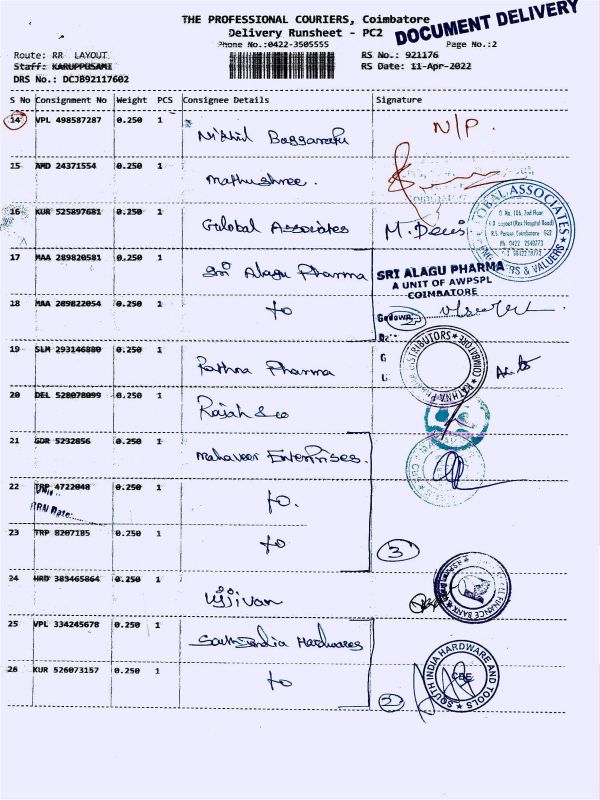 THE PROFESSIONAL COURIERS, Coimbatore
Delivery Runsheet - PC2
DOCUMENT DELIVERY
Phone No.:0422-3505555
Page No.:2
Route: RR LAYOUT
RS No.: 921176
Staff: KARUPPUSAMI
RS Date: 11-Apr-2022
DRS No.: DCJB92117602
S No Consignment No Weight PCS Consignee Details Signature
14 VPL 498587287 0.250 1 N/P.
15 AMD 24371554 0.250 1 Mathushree.
16 KUR 525897681 0.250 1 Gulobal Associates M. Devi
GLOBAL ASSOCIATES
D No. 106, 2nd Floor
R.S. Puram, Coimbatore
Ph: 0422
ENGINEERS & VALUERS
17 MAA 289820581 0.250 1 Sri Alagu Pharma
SRI ALAGU PHARMA
A UNIT OF AWPSPL
COIMBATORE
18 MAA 289822054 0.250 1 to
Godown
19 SLM 293146880 0.250 1 Rathna Pharma
RATHNA DISTRIBUTORS COIMBATORE
20 DEL 528078099 0.250 1 Rajah & co
21 GDR 5232856 0.250 1 Mahaveer Enterprises.
22 TRP 4722048 0.250 1 to.
RRN Date:
23 TRP 8207185 0.250 1 to 3
24 HRD 383465864 0.250 1 Ujjivan
FINANCE BANK
25 VPL 334245678 0.250 1 South India Hardwares
SOUTH INDIA HARDWARE AND TOOLS
CBE
26 KUR 526073157 0.250 1 to 2